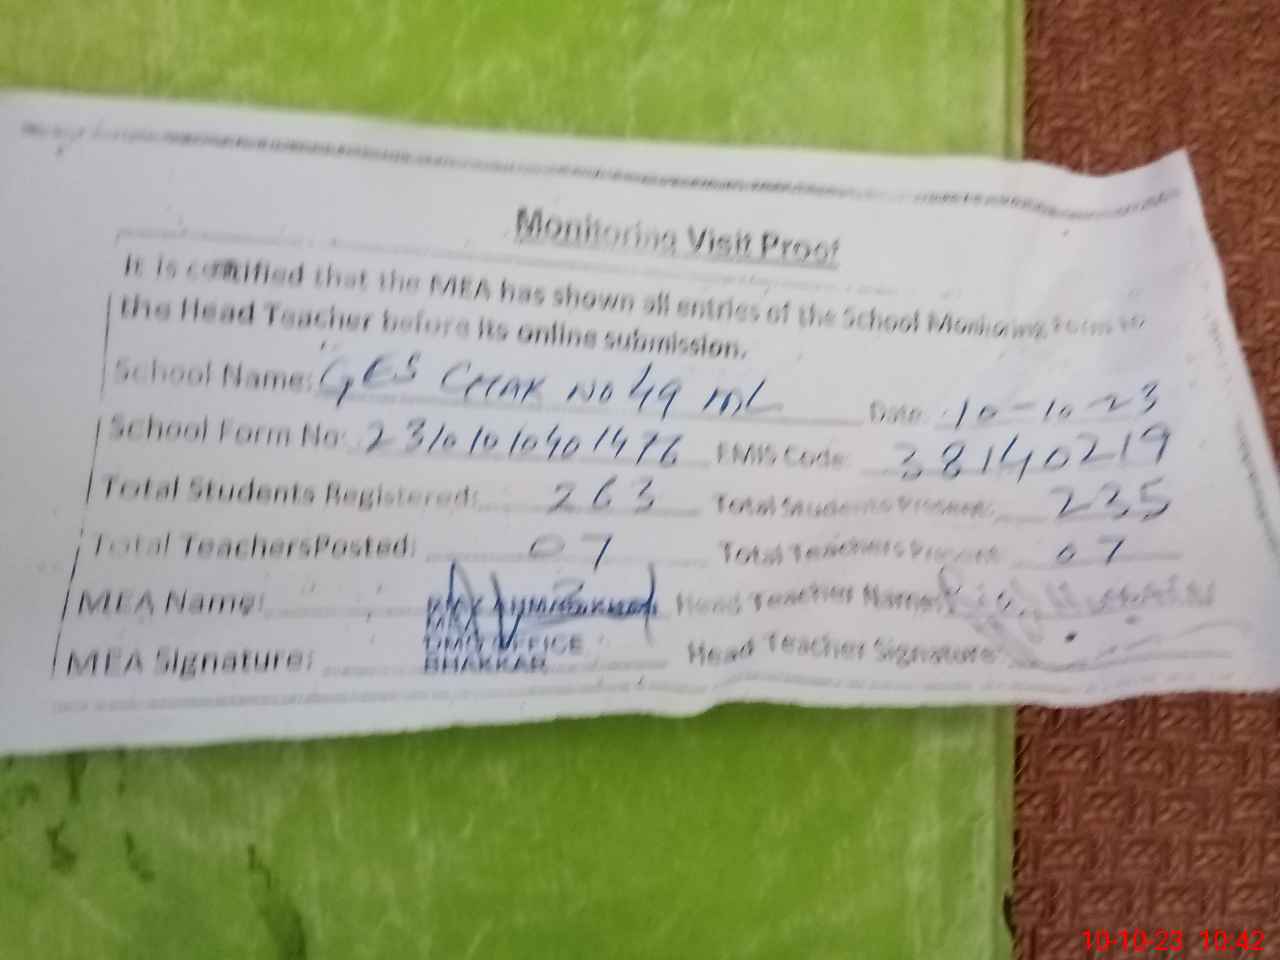 Monitoring Visit Proof
It is certified that the MEA has shown all entries of the School Monitoring Form to
the Head Teacher before its online submission.
School Name: GES CHAK NO 49 ML Date: 10-10-23
School Form No: 23101010401476 EMIS Code: 38140219
Total Students Registered: 263 Total Students Present: 235
Total TeachersPosted: 07 Total Teachers Present: 07
MEA Name: Head Teacher Name:
DMO OFFICE
MEA Signature: BHAKKAR Head Teacher Signature:
10-10-23 10:42